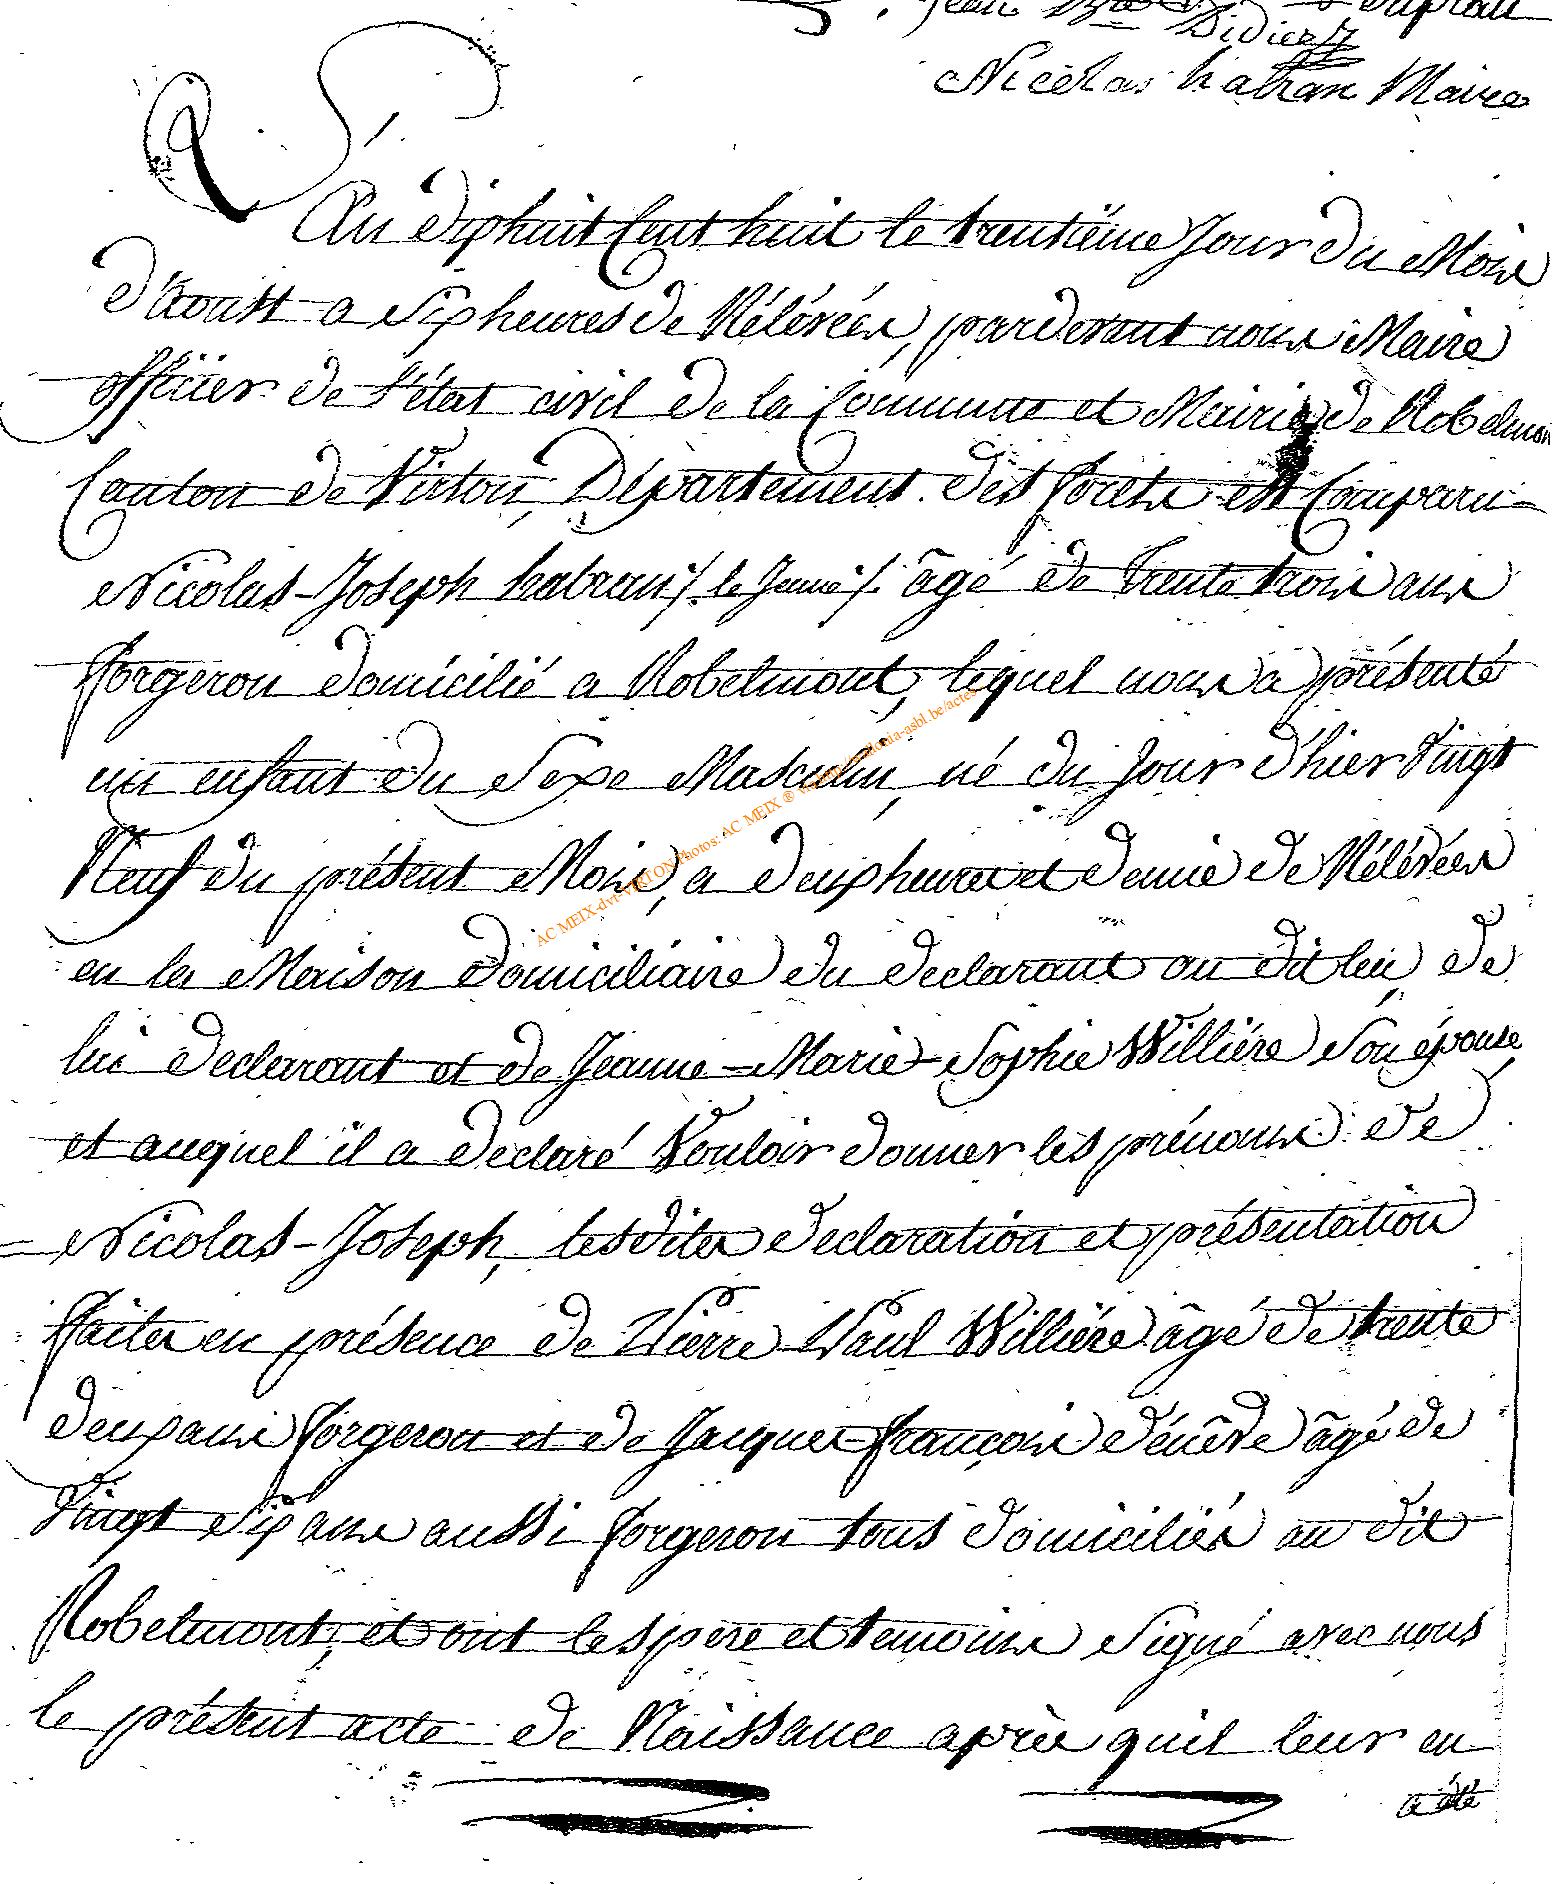 Jean
Didier
Nicolas hatran Maire
L'An dixhuit Cent huit le trentiéme Jour du Mois
d'aoust a Six heures de Rélévées, pardevant nous Maire
officier de l'état civil de la Commune et Mairie de Robelmon
Canton de Virton, Département des forets est Comparu
Nicolas-Joseph hatran /. le Jeune /. âgé de trente trois ans
forgeron domicilié a Robelmont, lequel nous a présenté
un enfant du Sexe Masculin, né du Jour d'hier Vingt
Neuf du présent Mois, a deux heures et demie de Rélévées
en la Maison domiciliaire du declarant au dit lieu, de
lui declarant et de Jeanne-Marie-Sophie Williére Son épouse,
et auquel il a declaré Vouloir donner les prénoms de
Nicolas-Joseph, lesdites declaration et présentation
faites en présence de Pierre Paul Williére âgé de trente
deux ans forgeron et de Jacques-françois dénêve âgé de
Vingt Six ans aussi forgeron tous domiciliés au dit
Robelmont, et ont les pere et temoins Signé avec nous
le présent acte de Naissance après quil leur en
a été
AC MEIX-dvt-VIRTON Photos: AC MEIX ®